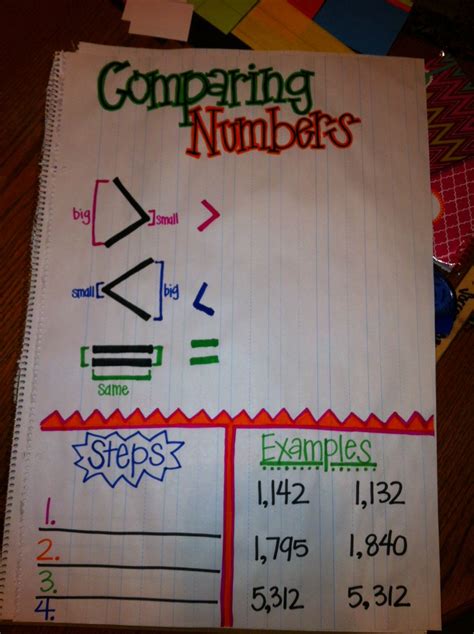 Comparing
Numbers
big > small >
small < big <
= =
same
Steps
Examples
1.
2.
3.
4.
1,142 1,132
1,795 1,840
5,312 5,312